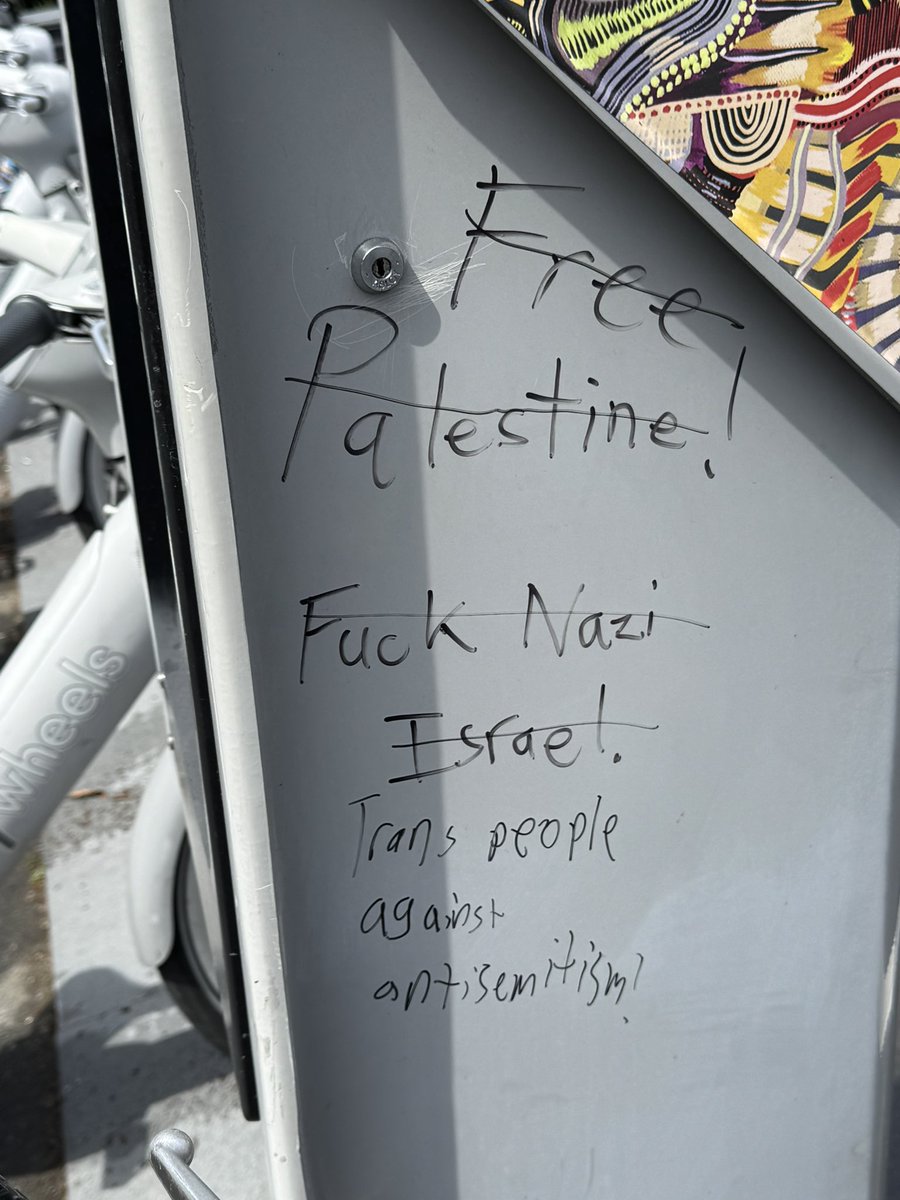 Free
Palestine!
Fuck Nazi
Israel.
Trans people
against
antisemitism!
wheels